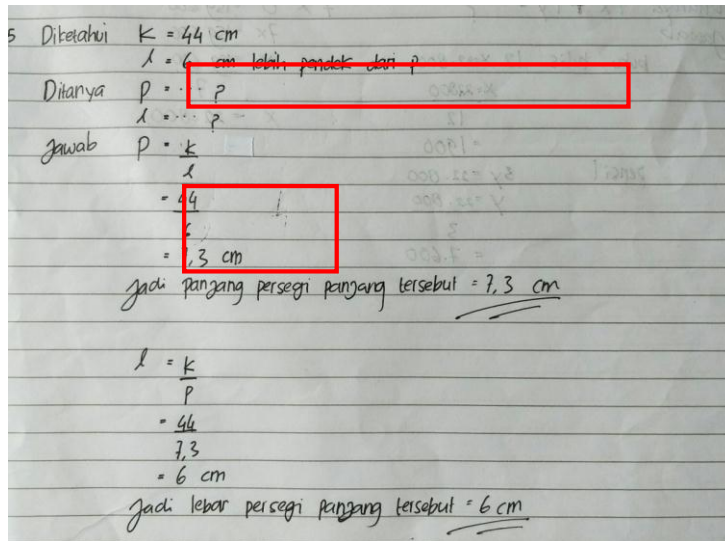 5 Diketahui K = 44 cm
l = 6 cm lebih pendek dari p
Ditanya P = ... ?
l = ... ?
Jawab P = K
l
= 44
6
= 7,3 cm
Jadi panjang persegi panjang tersebut = 7,3 cm
l = K
P
= 44
7,3
= 6 cm
Jadi lebar persegi panjang tersebut = 6 cm